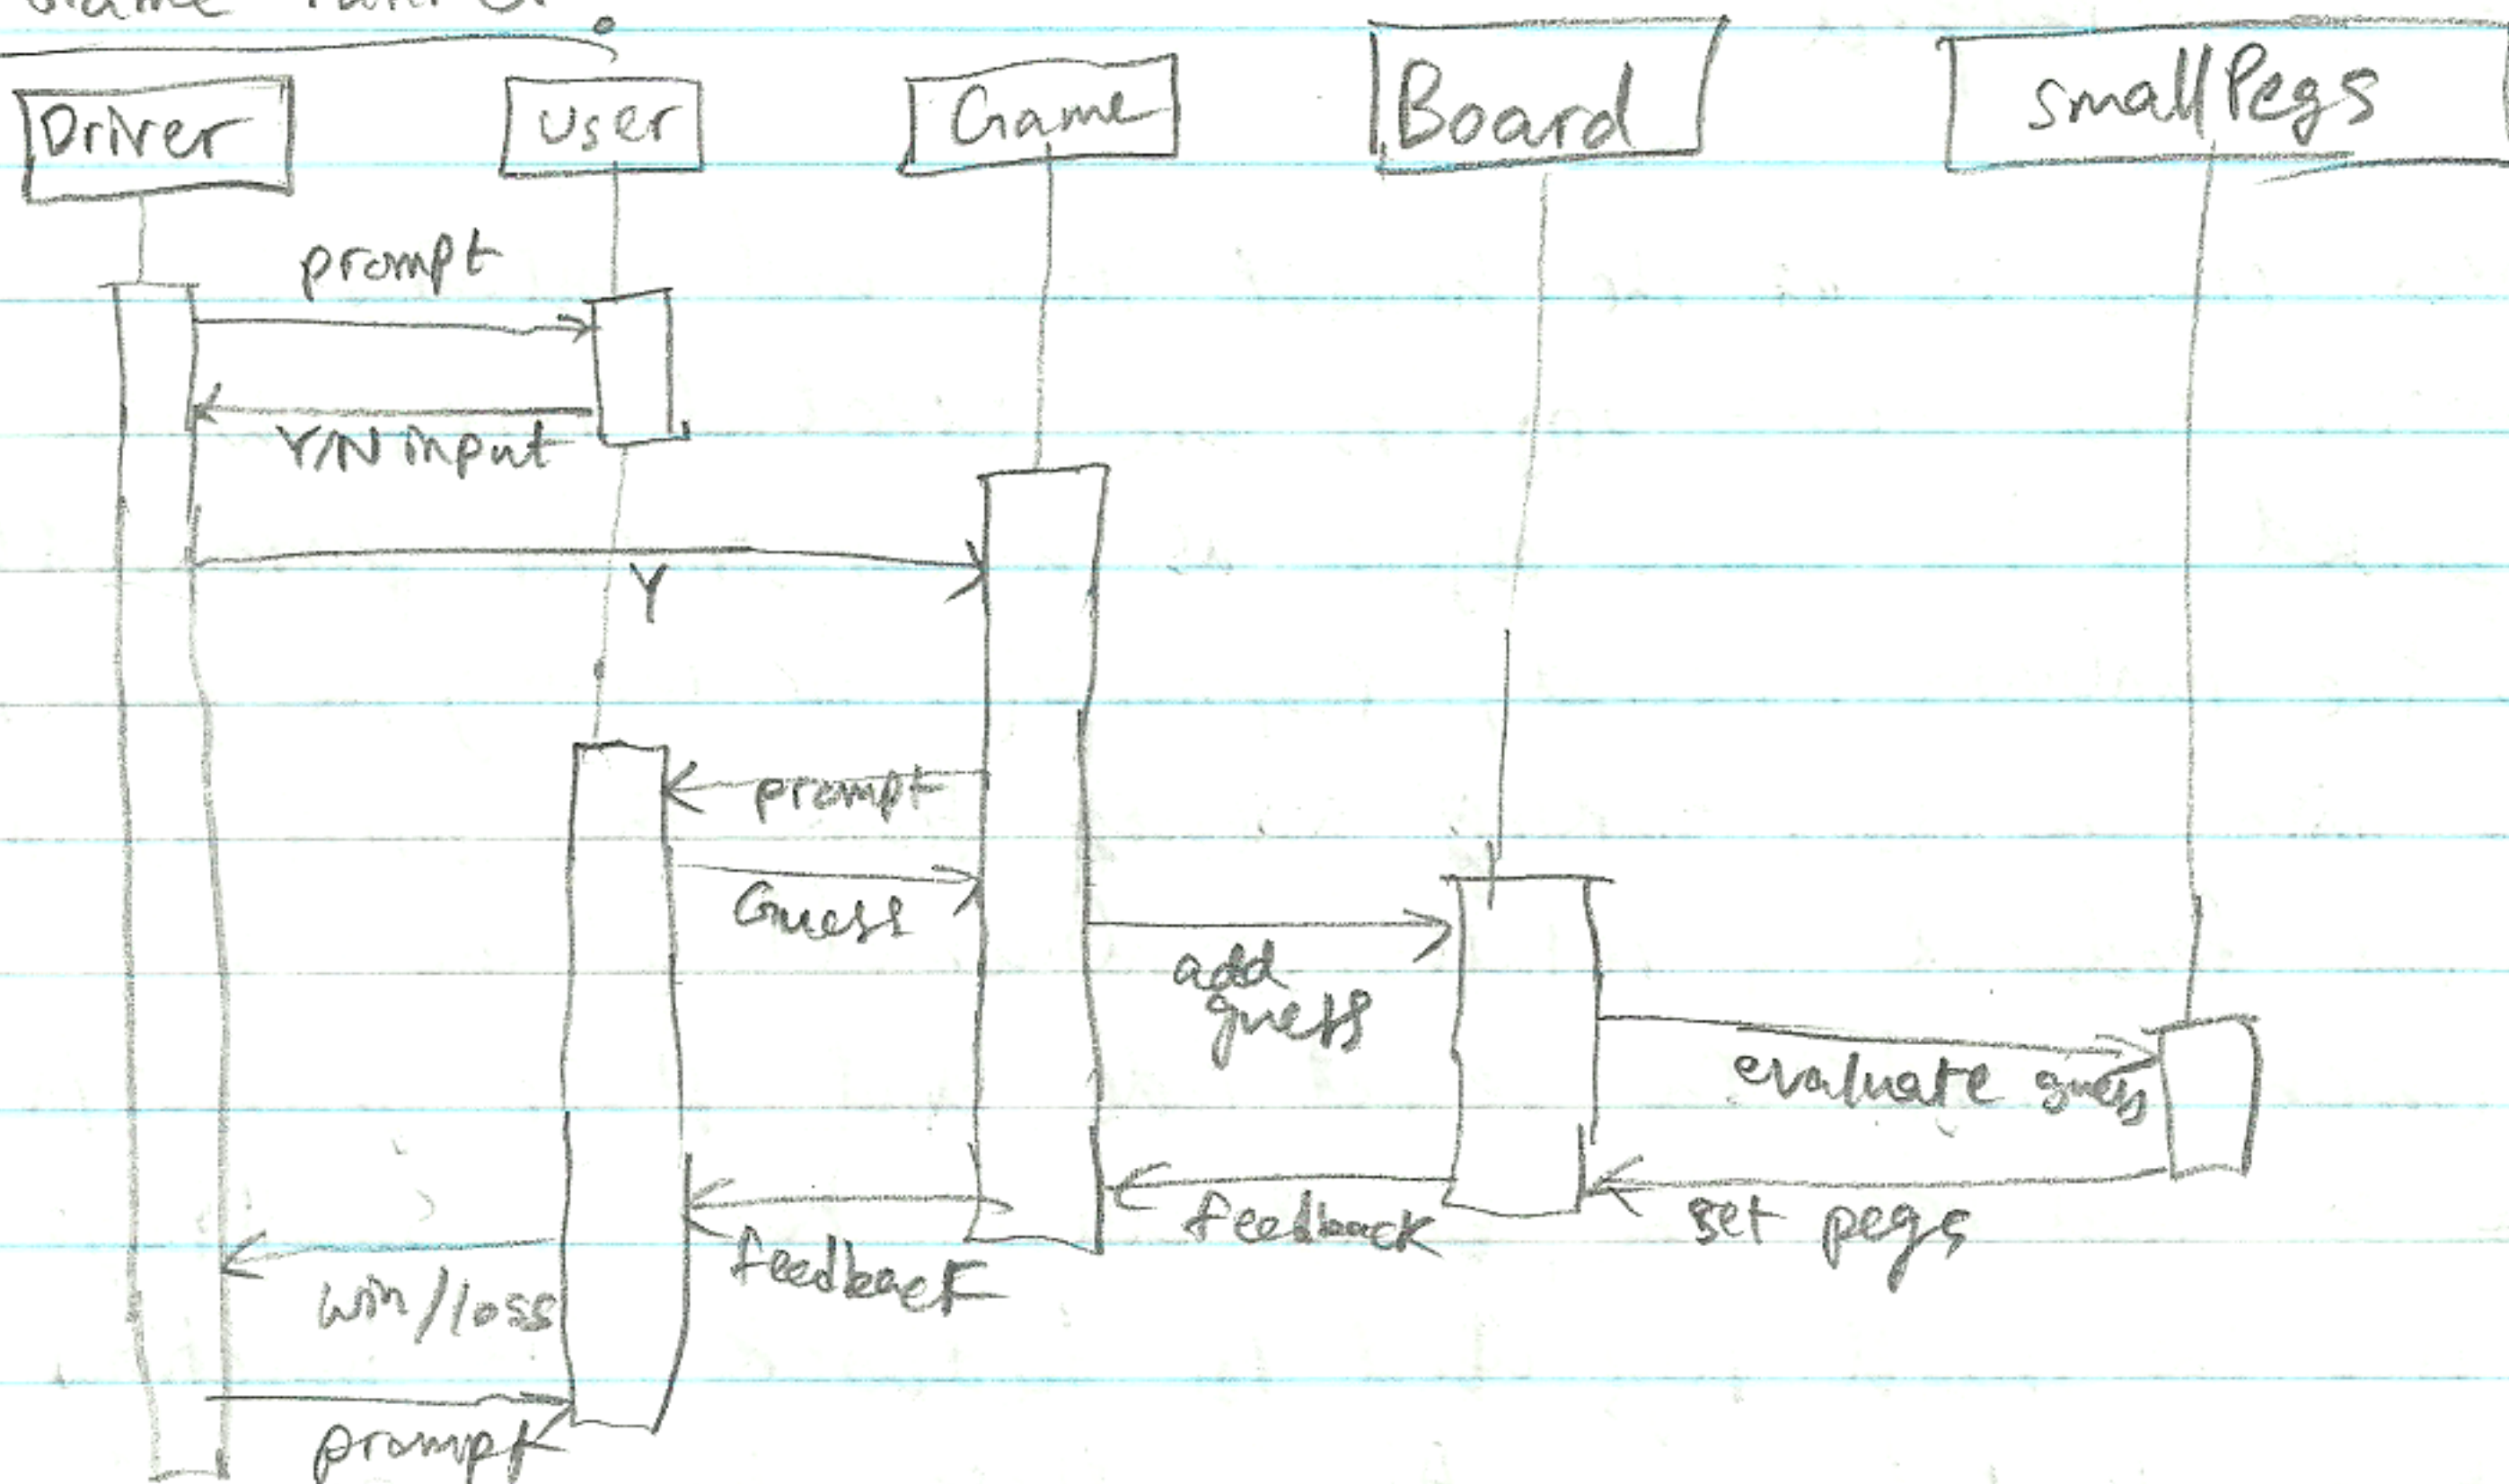 Game
Driver
User
Game
Board
smallPegs
prompt
Y/N input
Y
prompt
Guess
add
guess
evaluate guess
set pegs
feedback
feedback
win/loss
prompt